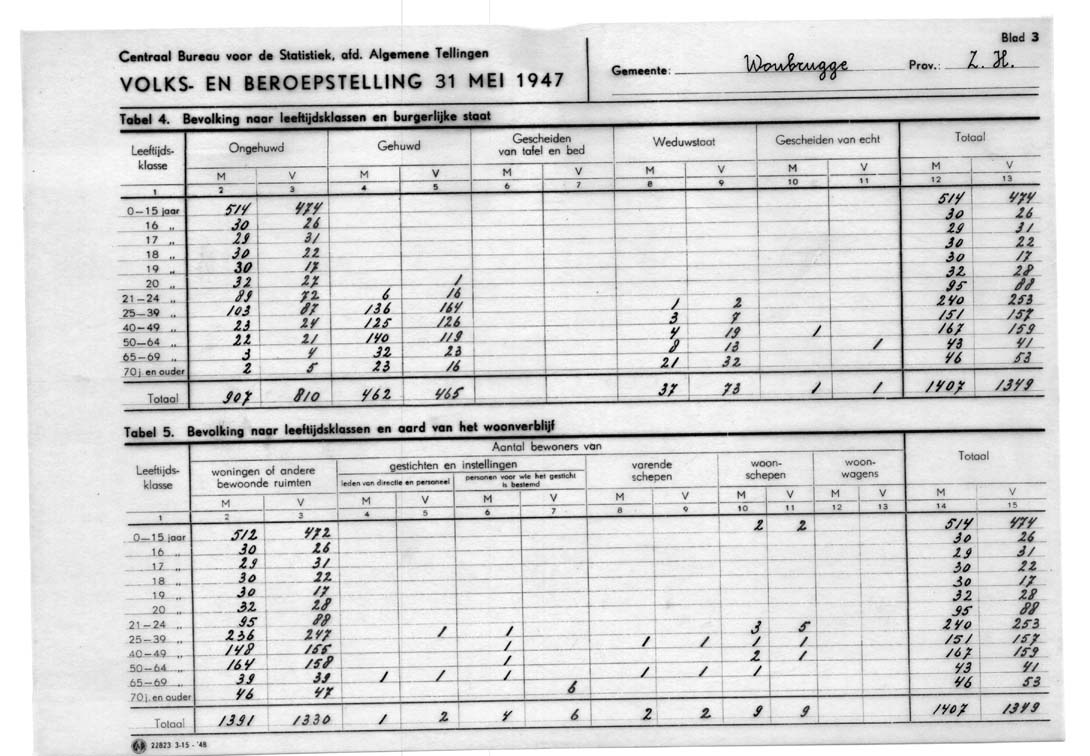 Blad 3
Centraal Bureau voor de Statistiek, afd. Algemene Tellingen
VOLKS- EN BEROEPSTELLING 31 MEI 1947
Gemeente: Woubrugge Prov.: Z. H.
Tabel 4. Bevolking naar leeftijdsklassen en burgerlijke staat
Leeftijds-klasse Ongehuwd Gehuwd Gescheiden van tafel en bed Weduwstaat Gescheiden van echt Totaal
M V M V M V M V M V M V
1 2 3 4 5 6 7 8 9 10 11 12 13
0—15 jaar 514 474 514 474
16 „ 30 26 30 26
17 „ 29 31 29 31
18 „ 30 22 30 22
19 „ 30 17 30 17
20 „ 32 27 1 32 28
21—24 „ 89 72 6 16 95 88
25—39 „ 103 87 136 164 1 2 240 253
40—49 „ 23 24 125 126 3 7 151 157
50—64 „ 22 21 140 119 4 19 1 167 159
65—69 „ 3 4 32 23 8 13 1 43 41
70 j. en ouder 2 5 23 16 21 32 46 53
Totaal 907 810 462 465 37 73 1 1 1407 1349
Tabel 5. Bevolking naar leeftijdsklassen en aard van het woonverblijf
Aantal bewoners van
Leeftijds-klasse woningen of andere bewoonde ruimten gestichten en instellingen varende schepen woon-schepen woon-wagens Totaal
leden van directie en personeel personen voor wie het gesticht is bestemd
M V M V M V M V M V M V M V
1 2 3 4 5 6 7 8 9 10 11 12 13 14 15
0—15 jaar 512 472 2 2 514 474
16 „ 30 26 30 26
17 „ 29 31 29 31
18 „ 30 22 30 22
19 „ 30 17 30 17
20 „ 32 28 32 28
21—24 „ 95 88 95 88
25—39 „ 236 247 1 1 3 5 240 253
40—49 „ 148 155 1 1 1 1 1 151 157
50—64 „ 164 158 1 2 1 167 159
65—69 „ 39 39 1 1 1 1 1 1 43 41
70 j. en ouder 46 47 6 46 53
Totaal 1391 1330 1 2 4 6 2 2 9 9 1407 1349
22823 3-15 - '48